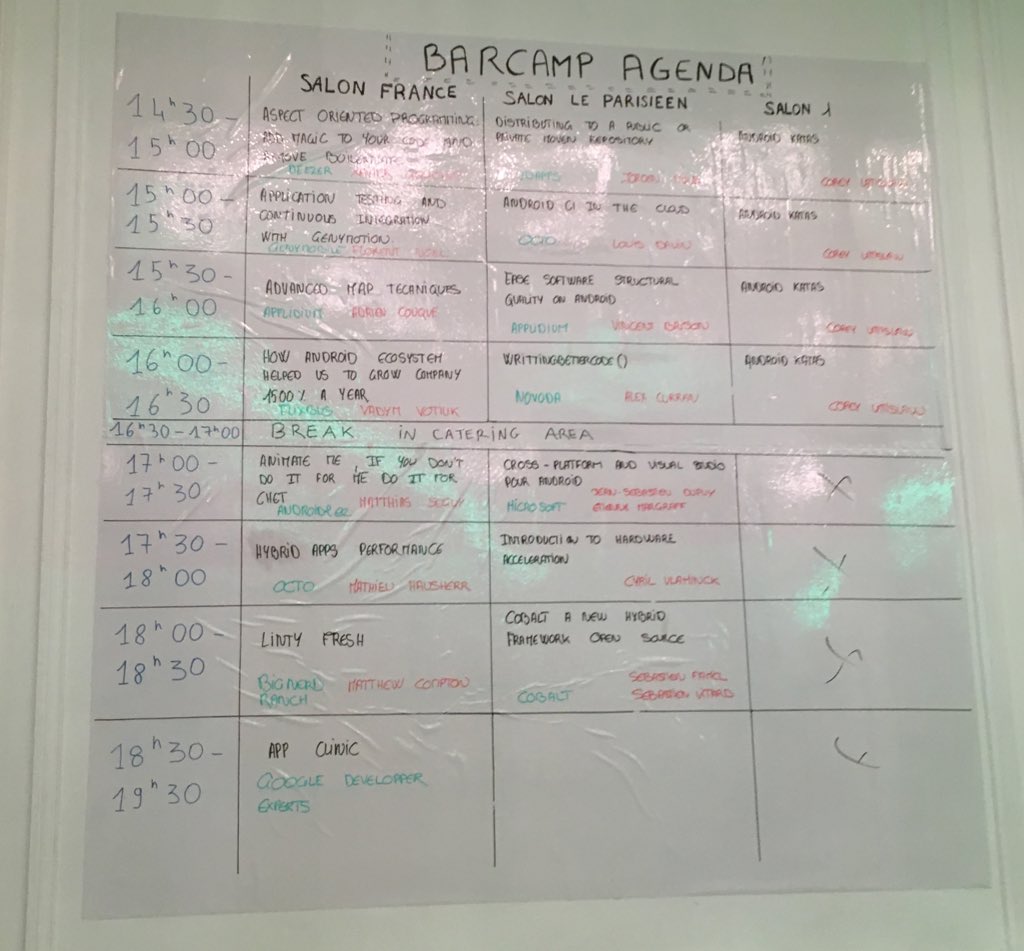 BARCAMP AGENDA
SALON FRANCE
SALON LE PARISIEEN
SALON 1
14h30 -
15h00
ASPECT ORIENTED PROGRAMMING:
ADD MAGIC TO YOUR CODE AND
REMOVE
DEEZER
DISTRIBUTING TO A PUBLIC OR
PRIVATE MAVEN REPOSITORY
ANDROID KATAS
COREY
15h00 -
15h30
APPLICATION TESTING AND
CONTINUOUS INTEGRATION
WITH GENYMOTION
GENYMOBILE FLORENT
ANDROID CI IN THE CLOUD
OCTO LOUIS
ANDROID KATAS
COREY
15h30 -
16h00
ADVANCED MAP TECHNIQUES
APPLIDIUM ADRIEN COUQUE
EASE SOFTWARE STRUCTURAL
QUALITY ON ANDROID
APPLIDIUM VINCENT
ANDROID KATAS
COREY
16h00 -
16h30
HOW ANDROID ECOSYSTEM
HELPED US TO GROW COMPANY
1500% A YEAR
VADYM
WRITTINGBETTERCODE()
NOVODA ALEX CURRAN
ANDROID KATAS
COREY
16h30-17h00
BREAK IN CATERING AREA
17h00 -
17h30
ANIMATE ME, IF YOU DON'T
DO IT FOR ME DO IT FOR
CHET
MATTHIAS SEGUY
CROSS-PLATFORM AND VISUAL STUDIO
POUR ANDROID
JEAN-SEBASTIEN DUPUY
MICROSOFT ETIENNE MARGRAFF
X
17h30 -
18h00
HYBRID APPS PERFORMANCE
OCTO MATHIEU HAUSHERR
INTRODUCTION TO HARDWARE
ACCELERATION
CYRIL
X
18h00 -
18h30
LINTY FRESH
BIG NERD MATTHEW COMPTON
RANCH
COBALT A NEW HYBRID
FRAMEWORK OPEN SOURCE
SEBASTIEN
COBALT SEBASTIEN VITARD
X
18h30 -
19h30
APP CLINIC
GOOGLE DEVELOPPER
EXPERTS